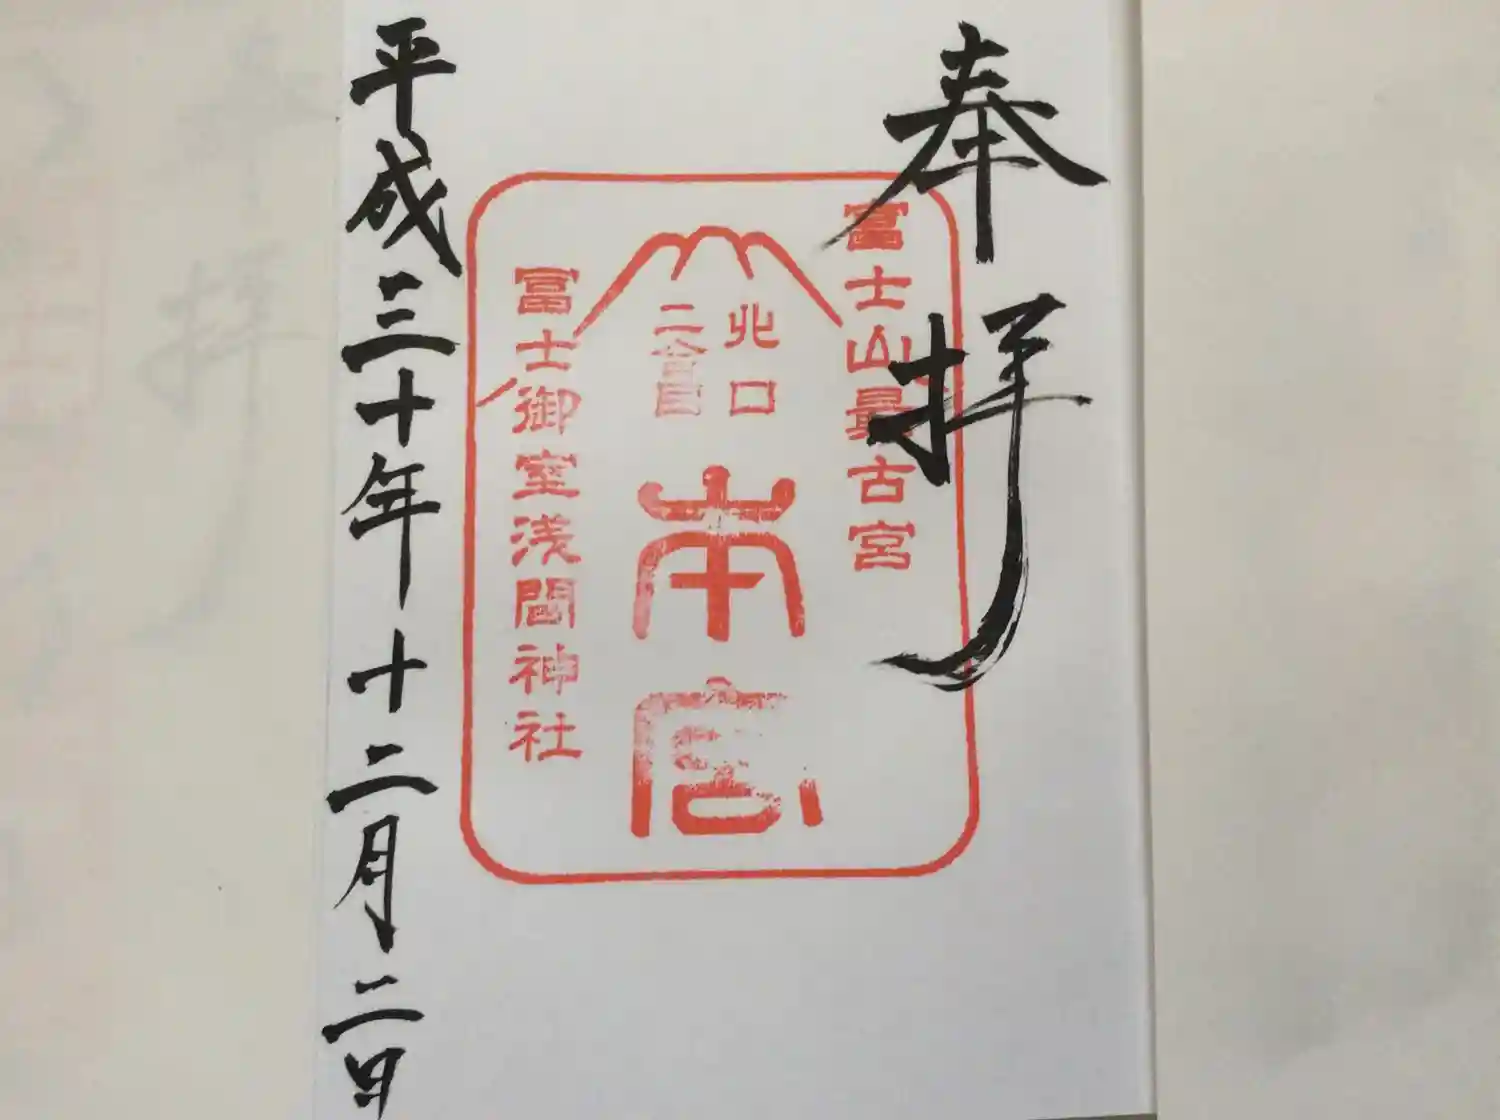 奉拝
富士山最古宮
北口
二合目
本宮
冨士御室浅間神社
平成三十年十二月二日